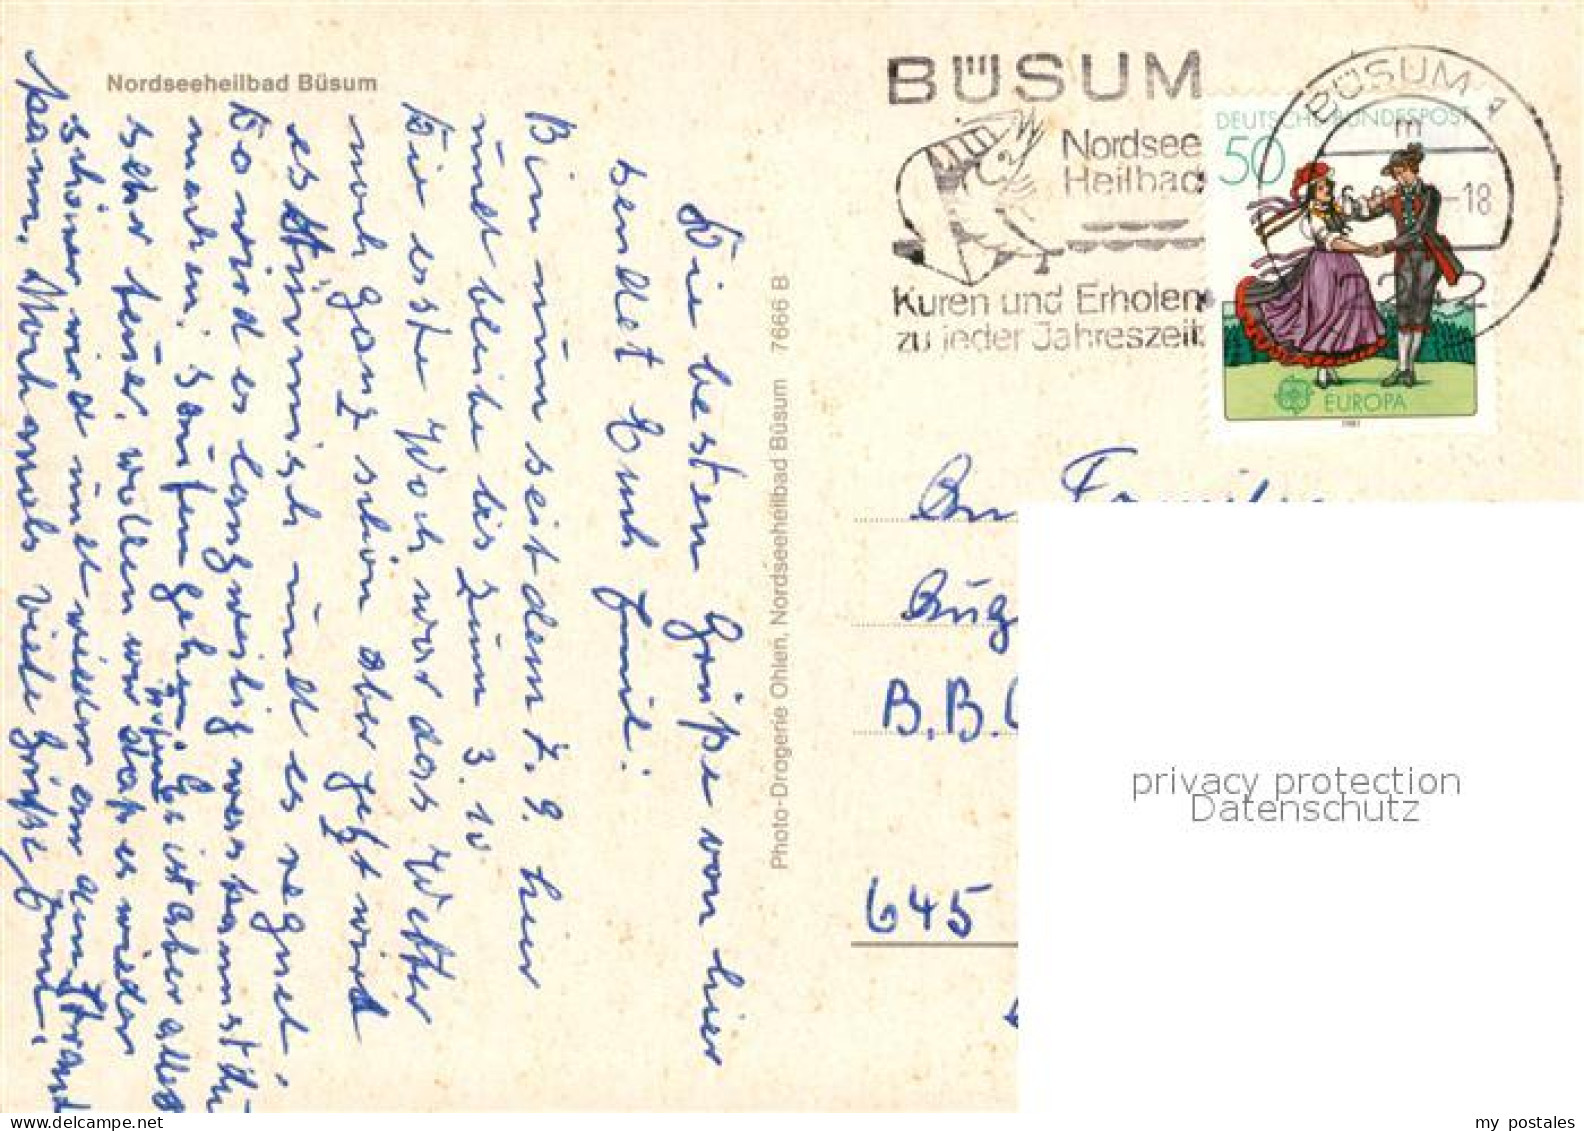 Nordseeheilbad Büsum
BÜSUM
Nordsee
Heilbad
Kuren und Erholen
zu jeder Jahreszeit
BÜSUM 1
m
-18
DEUTSCHE BUNDESPOST
50
EUROPA
1981
Die besten Grüße von hier
sendet Euch
Bin nun seit dem 7.9. hier
und bleibe bis zum 3.10
Die erste Woch war das Wetter
noch ganz schön aber jetzt wird
es stürmisch und es regnet.
So wird es langweilig was kannst du
machen, saufen gehen. Es ist aber alles
sehr teuer, wollen wir hoffen daß es wieder
schöner wird und wieder am Strand
kann. Nochmals viele Grüße
Photo-Drogerie Ohlen, Nordseeheilbad Büsum 7666 B
An Familie
Aug
B.B.
645
privacy protection
Datenschutz
my postales